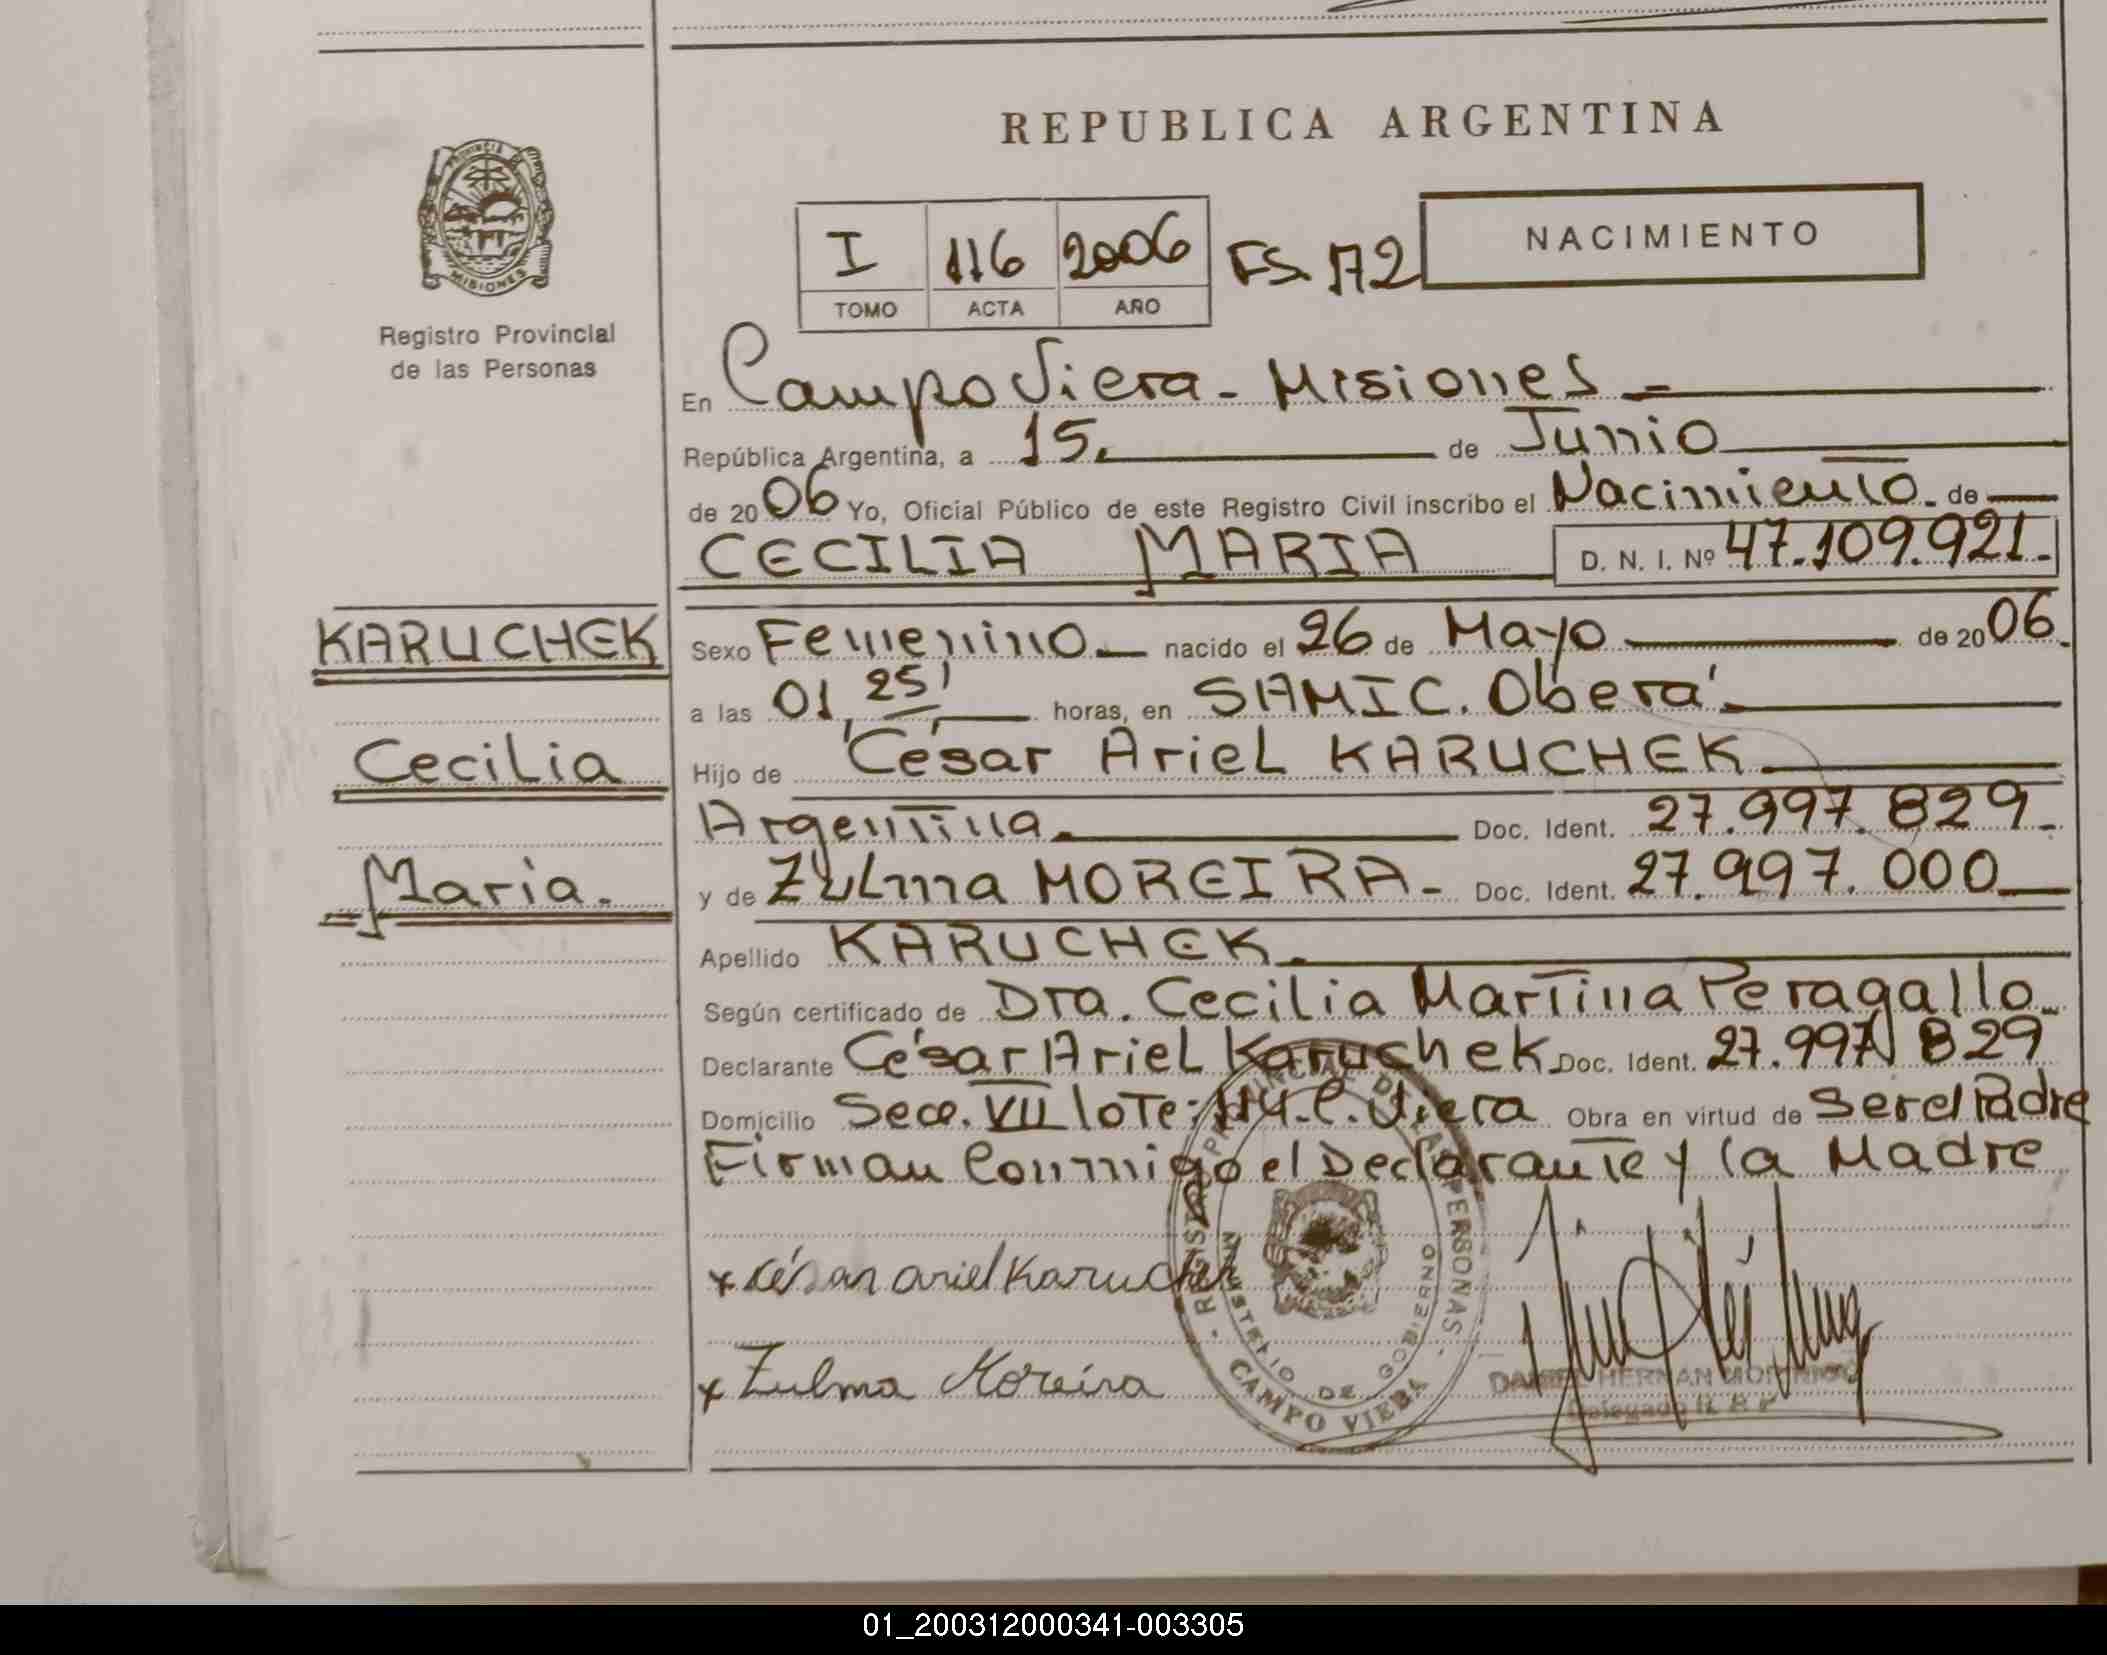 REPUBLICA ARGENTINA
PROVINCIA DE
MISIONES
Registro Provincial
de las Personas
I 116 2006 FS. 172 NACIMIENTO
TOMO ACTA AÑO
En Campo Viera - Misiones
República Argentina, a 15. de Junio
de 2006 Yo, Oficial Público de este Registro Civil inscribo el Nacimiento. de
CECILIA MARIA D. N. I. Nº 47.109.921.
KARUCHEK
Cecilia
Maria.
Sexo Femenino nacido el 26 de Mayo de 2006.
a las 01,25' horas, en SAMIC. Oberá
Hijo de César Ariel KARUCHEK
Argentina. Doc. Ident. 27.997.829
y de Zulma MOREIRA. Doc. Ident. 27.997.000
Apellido KARUCHEK.
Según certificado de Dra. Cecilia Martina Peragallo
Declarante César Ariel Karuchek Doc. Ident. 27.997.829
Domicilio Secc. VII lote: 114. C. Viera Obra en virtud de Ser el Padre
Firman Conmigo el Declarante y la Madre
x César ariel Karuchek
x Zulma Moreira
REGISTRO PROVINCIAL DE LAS PERSONAS
MINISTERIO DE GOBIERNO
CAMPO VIERA
DANIEL HERNAN
Delegado
01_200312000341-003305